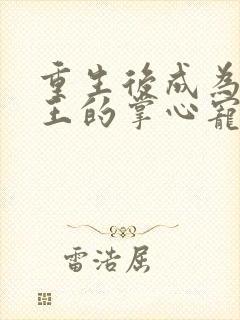 重生後成為
王的掌心寵
雷浩屈